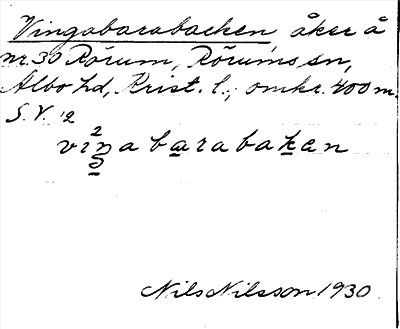 Vingabarabacken, åker å
nr. 30 Rörum, Rörums sn,
Albo hd, Krist. l., omkr. 400 m.
S.V.
vi²ŋa barabaken
Nils Nilsson 1930